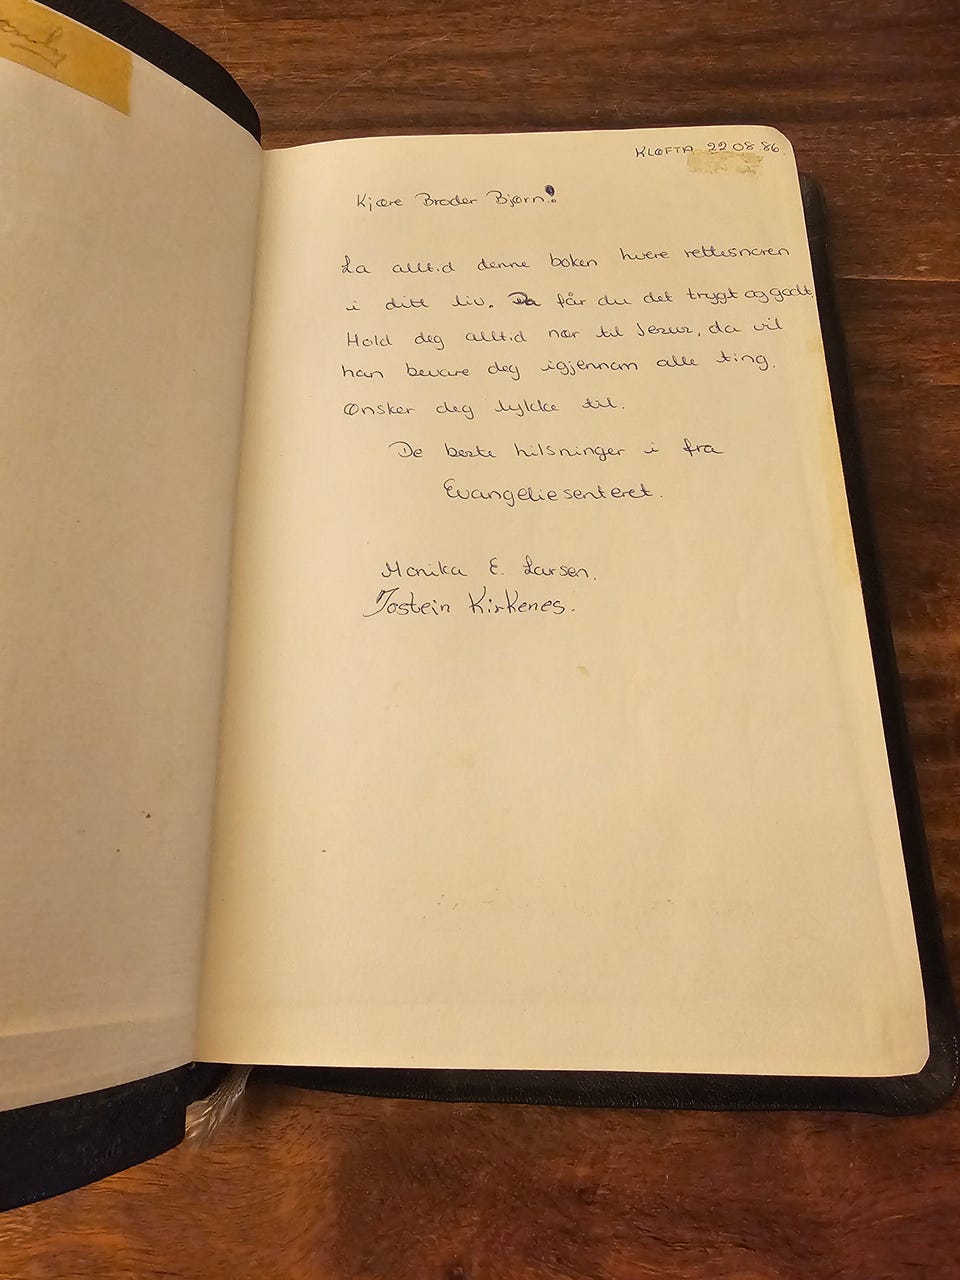 KLØFTA 22 08 86
Kjære Broder Bjørn!
La alltid denne boken hvere rettesnoren
i ditt liv. Da får du det trygt og godt.
Hold deg alltid nær til Jesus, da vil
han bevare deg igjennom alle ting.
Ønsker deg lykke til.
De beste hilsninger i fra
Evangeliesenteret.
Monika E. Larsen.
Jostein Kirkenes.